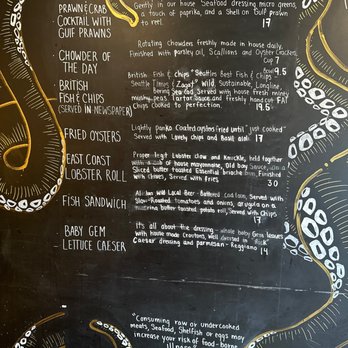 PRAWN & CRAB
COCKTAIL WITH
GULF PRAWN
Gently in our house Seafood dressing micro greens,
a touch of paprika, and a Shell on Gulf prawn
to reel. 17
CHOWDER OF
THE DAY
Rotating Chowders freshly made in house daily.
Finished with parsley oil, Scallions and Oyster Crackers.
Cup 7
Bowl 9.5
BRITISH
FISH & CHIPS
(SERVED IN NEWSPAPER)
British Fish & Chips "Seattle's Best Fish & Chips
Seattle Times & "Zagat" Wild Sustainable, Longline
Seafood Served with House fresh
mushy peas, Tartar Sauce and freshly hand cut FAT
Chips Cooked to perfection. 19.5
FRIED OYSTERS
Lightly panko Coated oysters fried until "just cooked"
Served with Lovely chips and Basil aioli 17
EAST COAST
LOBSTER ROLL
Proper legit Lobster claw and Knuckle, held together
with a of house mayonnaise, Old bay Sauce, on a
Sliced butter toasted Essential brioche bun. Finished
with chives, Served with fries. 30
FISH SANDWICH
Wild Local Beer-Battered Cod loin, Served with
Slow-Roasted tomatoes and onions, arugula on a
butter toasted potato roll, Served with Chips
17
BABY GEM
LETTUCE CAESER
It's all about the dressing - whole baby Gem leaves
with house made Croutons, well dressed in
Caesar dressing and parmesan-Reggiano 14
"Consuming raw or undercooked
meats, Seafood, Shellfish or eggs may
increase your risk of food-borne
illness"